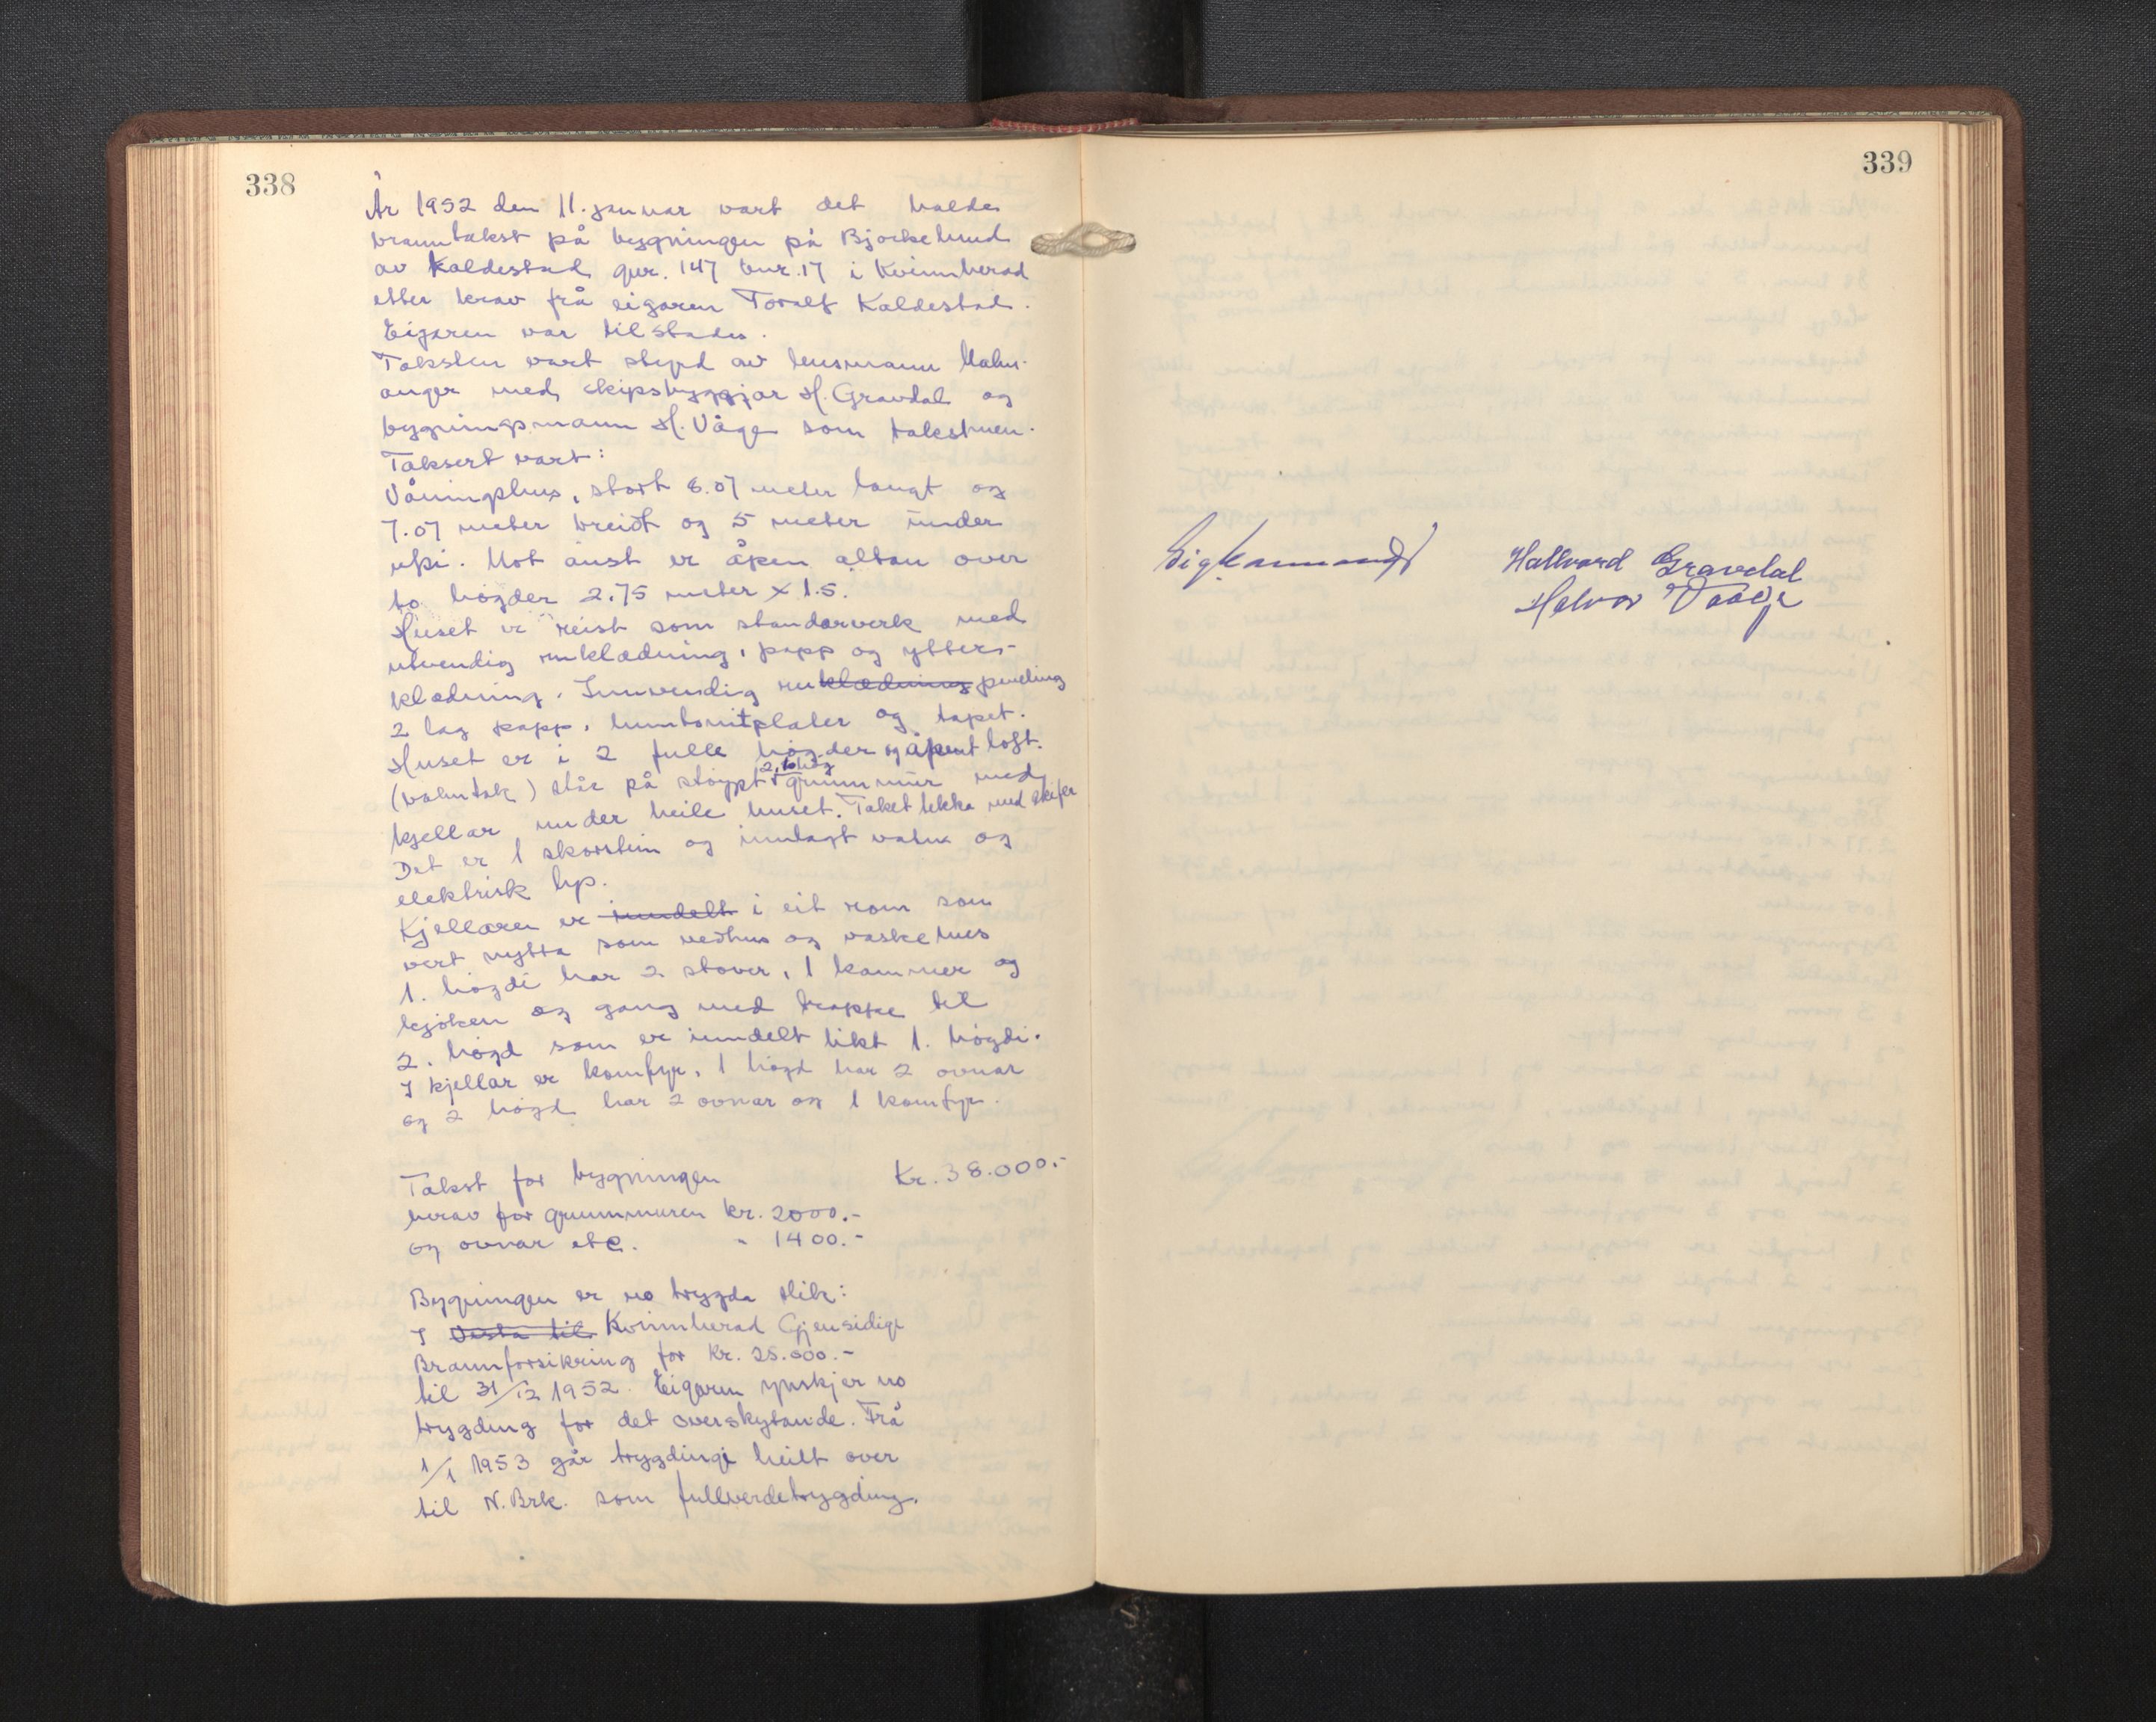 338
År 1952 den 11. januar vart det halde
branntakst på bygningen på Bjørkelund
av Kaldestad gnr. 147 bnr. 17 i Kvinnherad
etter krav frå eigaren Toralf Kaldestad.
Eigaren var tilstades.
Taksten vart styrd av lensmann Malm-
anger med skipsbyggjar H. Gravdal og
bygningsmann H. Våge som takstmen.
Taksert vart:
Våningshus, stort 8.07 meter langt og
7.07 meter breidt og 5 meter under
upsi. Mot aust er åpen altan over
to høgder 2.75 meter x 1.5.
Huset er reist som standarverk med
utvendig rukledning, papp og ytters-
kledning. Innvendig rukledning paneling
2 lag papp, huntonitplater og tapet.
Huset er i 2 fulle høgder og åpent loft.
(valmtak) står på støypt grunnmur med
kjellar under heile huset. Taket tekka med skifer
Det er 1 skorstein og innlagt vatn og
elektrisk lys.
Kjellaren er inndelt i eit rom som
vert nytta som vedhus og vaskehus
1. høgdi har 2 stover, 1 kammer og
kjøken og gang med trappe til
2. høgd som er inndelt likt 1. høgdi.
I kjellar er komfyr, 1 høgd har 2 ovnar
og 2 høgd har 2 ovnar og 1 komfyr.
Takst for bygningen Kr. 38.000.-
herav for grunnmuren kr. 2000.-
og ovnar etc. " 1400.-
Bygningen er no trygda slik:
I Kvinnherad Gjensidige
Brannforsikring for Kr. 25.000.-
til 31/12 1952. Eigaren ynskjer no
trygding for det overskytande. Frå
1/1 1953 går trygdingi heilt over
til N. Brk. som fullverdetrygding.
339
Hallvard Gravdal
Halvor Vaage